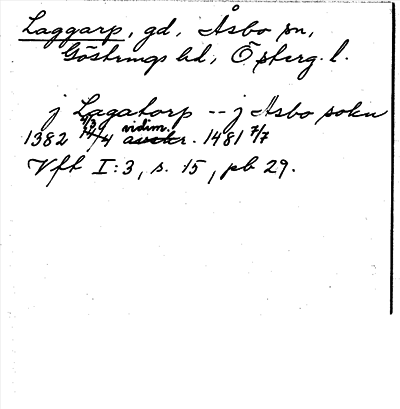 Laggarp, gd, Åsbo sn,
Göstrings hd, Österg. l.
j Lagatorp -- j Asbo sokn
1382 /4 vidim. 1481 7/7
Vft I:3, s. 15, pb 29.